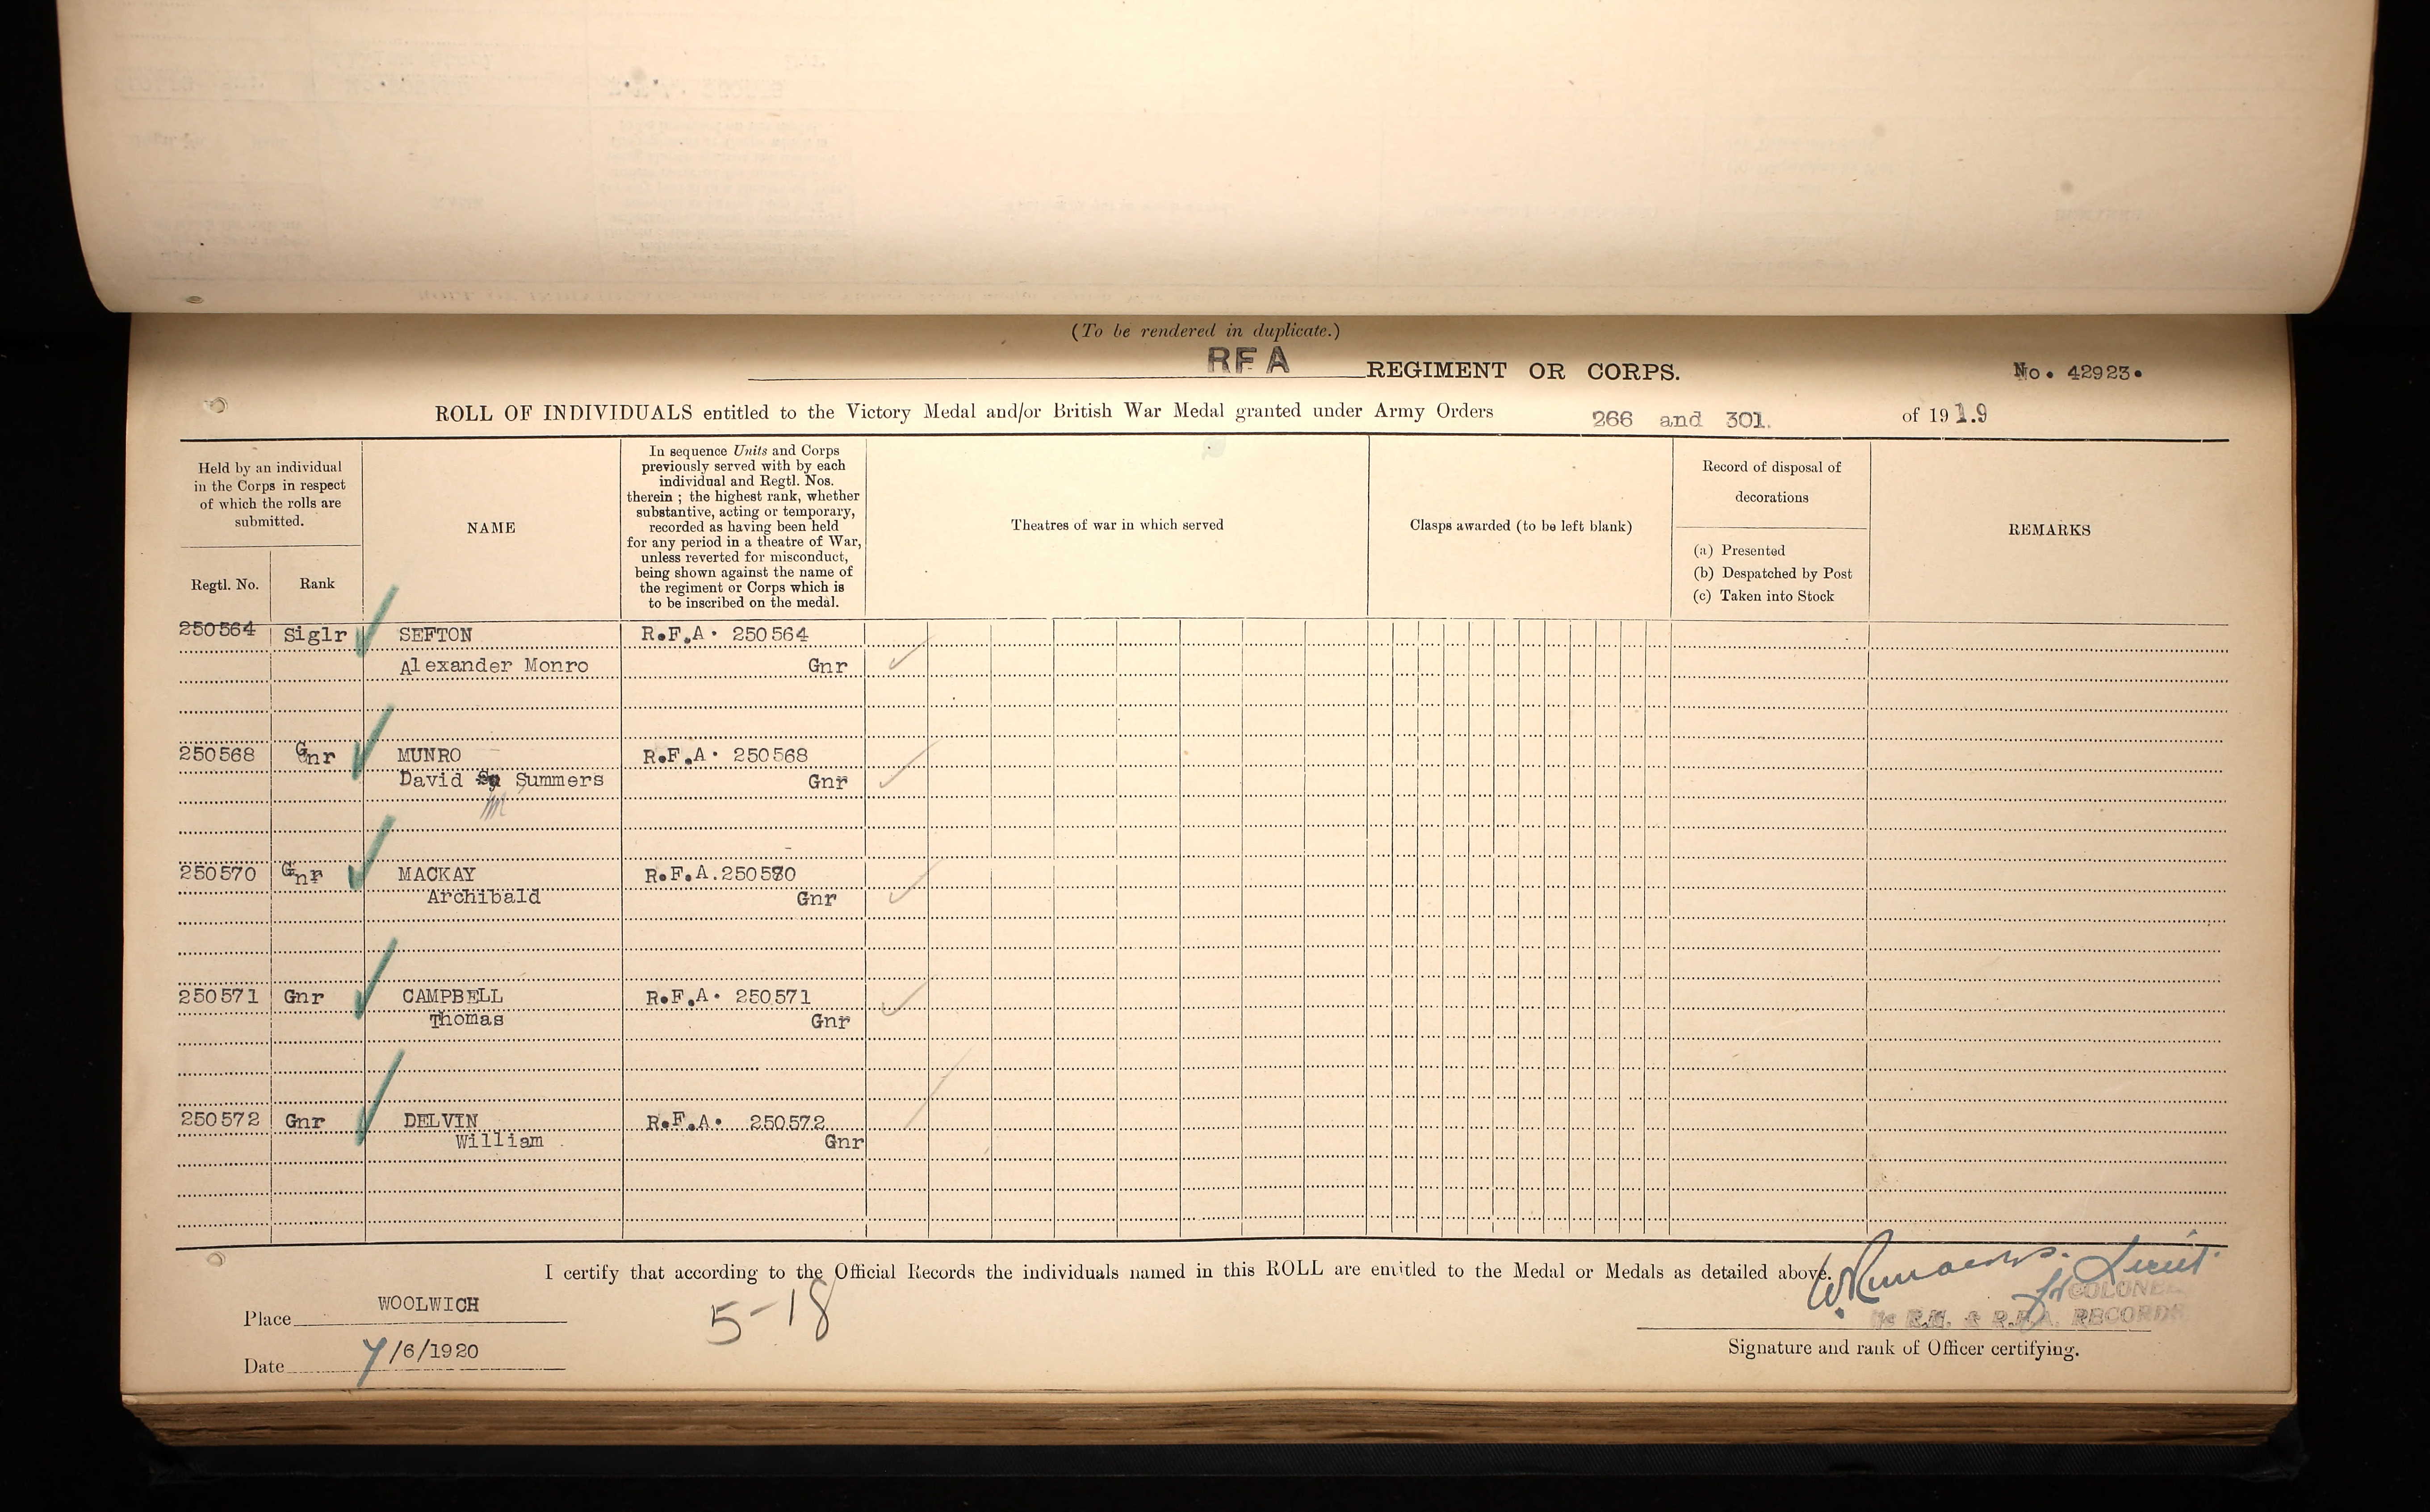 (To be rendered in duplicate.)
RFA REGIMENT OR CORPS. No. 42923.
ROLL OF INDIVIDUALS entitled to the Victory Medal and/or British War Medal granted under Army Orders 266 and 301. of 1919
Held by an individual
in the Corps in respect
of which the rolls are
submitted.
Regtl. No.
Rank
NAME
In sequence Units and Corps
previously served with by each
individual and Regtl. Nos.
therein ; the highest rank, whether
substantive, acting or temporary,
recorded as having been held
for any period in a theatre of War,
unless reverted for misconduct,
being shown against the name of
the regiment or Corps which is
to be inscribed on the medal.
Theatres of war in which served
Clasps awarded (to be left blank)
Record of disposal of
decorations
(a) Presented
(b) Despatched by Post
(c) Taken into Stock
REMARKS
250564 Siglr SEFTON R.F.A. 250564
Alexander Monro Gnr
250568 Gnr MUNRO R.F.A. 250568
David Summers Gnr
250570 Gnr MACKAY R.F.A. 250570
Archibald Gnr
250571 Gnr CAMPBELL R.F.A. 250571
Thomas Gnr
250572 Gnr DELVIN R.F.A. 250572
William Gnr
I certify that according to the Official Records the individuals named in this ROLL are entitled to the Medal or Medals as detailed above.
Lieut
COLONEL
R.H. & R.F.A. RECORDS
Place WOOLWICH
5-18
Signature and rank of Officer certifying.
Date 7/6/1920